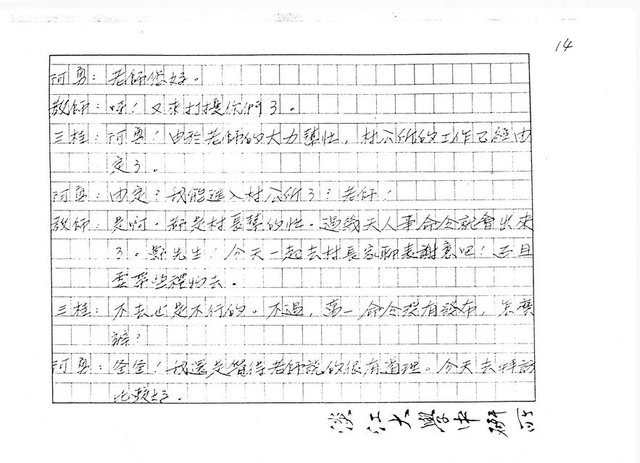 14
阿勇：老師您好。
教師：呀！又來打擾你們了。
三桂：阿勇！由於老師的大力幫忙，村公所的工作已經內
定了。
阿勇：內定？我能進入村公所了？老師！
教師：是啊。都是村長幫的忙。過幾天人事命令就會出來
了。鄭先生！今天一起去村長家聊表謝意吧！而且
要帶些禮物去。
三桂：不去也是不行的。不過，萬一命令沒有發布，怎麼
辦？
阿勇：爸爸！我還是覺得老師說的很有道理。今天去拜訪
比較好。
淡江大學中研所